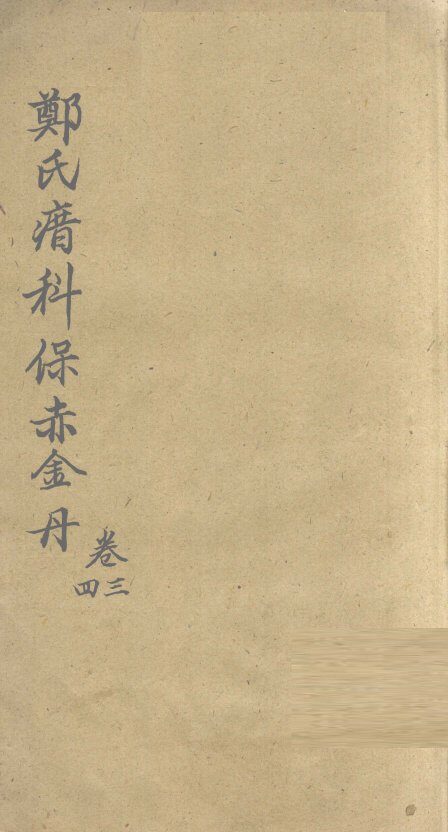 鄭氏瘄科保赤金丹
卷
三四